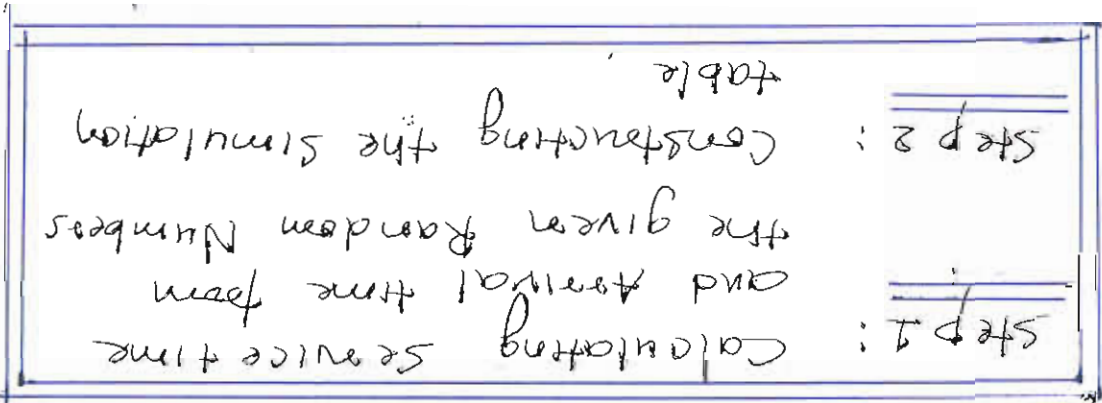 Step 1: Calculating Service time
and Arrival time from
the given Random Numbers
Step 2: Constructing the Simulation
table.